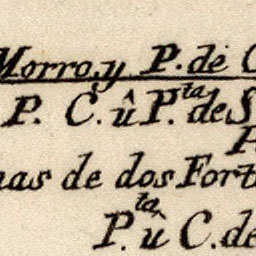 Morro, y P. de C
P. C. û P.ta de S
P
nas de dos Fort
P.ta û C. de